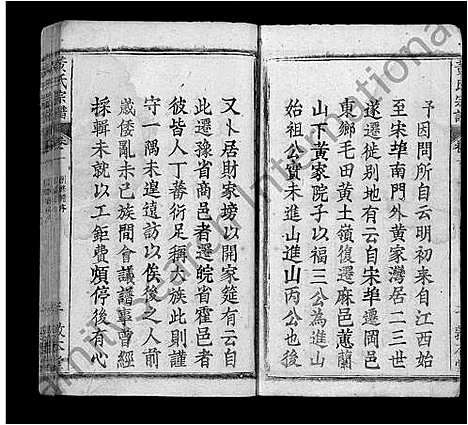 予因問所自云明初来自江西始
至宋埠南門外黄家灣居二三世
遂遷徙别地有云自宋埠遷岡邑
東鄉毛田黄土嶺復遷麻邑蕙蘭
山下黄家院子以福三公為進山
始祖公實未進山進山丙公也後
又卜居財家塝以開家筵有云自
此遷豫省商邑者遷皖省霍邑者
彼皆人丁蕃衍足稱大族此則謹
守一隅未遑遠訪以俟後之人前
歲倭亂未已族間會議譜事曾經
採輯未就以工鉅費煩停後有心
黄氏宗譜
卷一
敦本堂